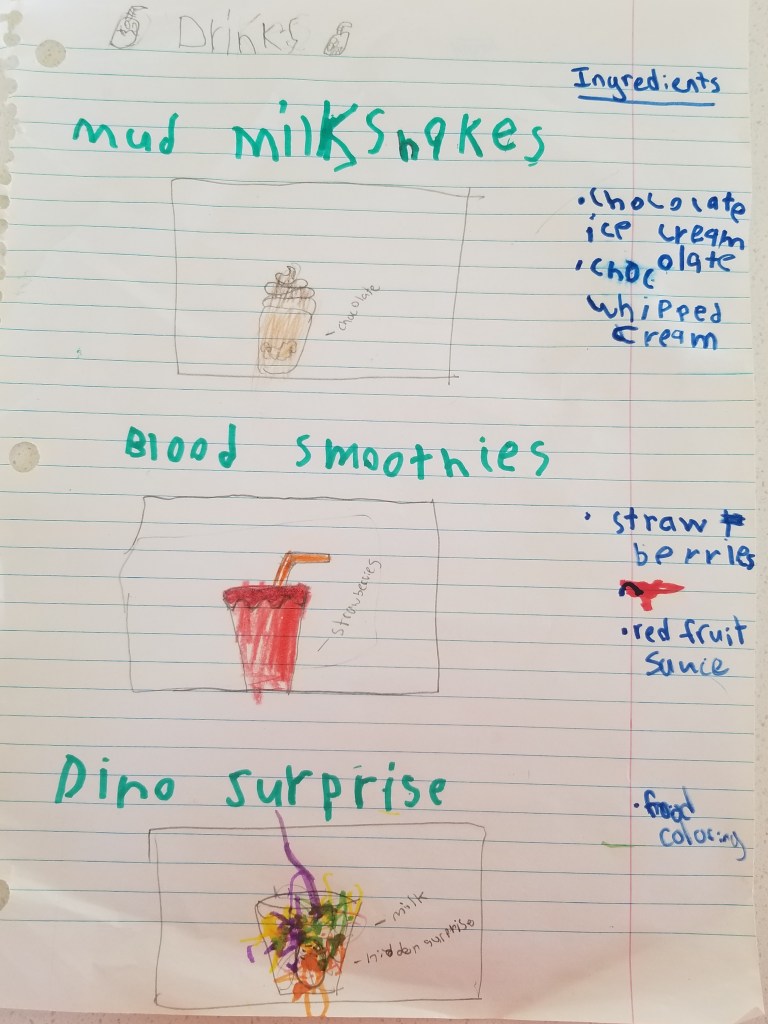 Drinks
Ingredients
mud milkshakes
• chocolate
ice cream
• chocolate
whipped
cream
- chocolate
Blood smoothies
• straw
berries
• red fruit
- strawberries
Dino surprise
• food
coloring
- milk
- hidden surprise